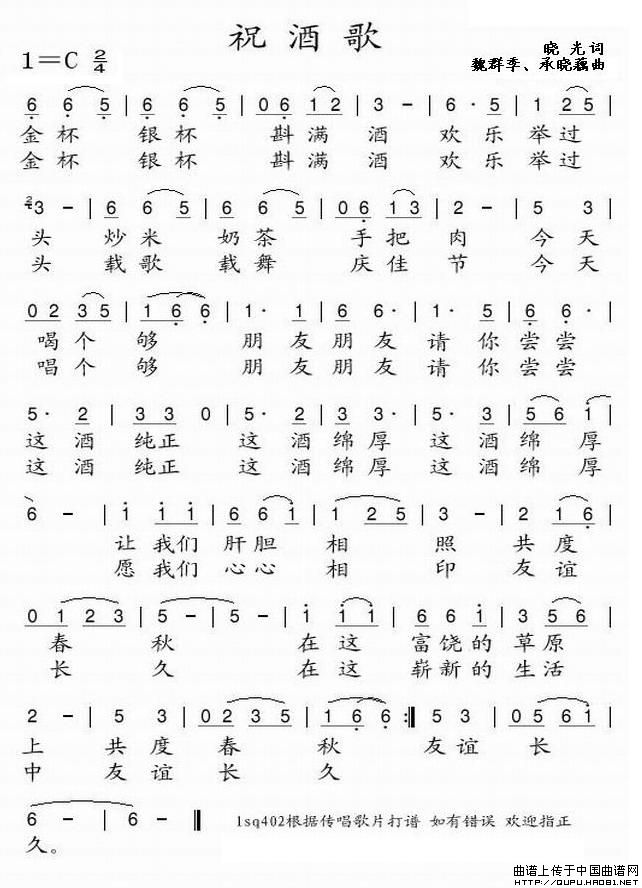 祝酒歌
1=C 2/4
晓光词
魏群季、承晓藕曲
6 6 5 | 6 6 5 | 0 6 1 2 | 3 - | 6· 5 | 1 2 5 |
金杯 银杯 斟满 酒 欢乐举过
金杯 银杯 斟满 酒 欢乐举过
2 3 - | 6 6 5 | 6 6 5 | 0 6 1 3 | 2 - | 5 3 |
头 炒米 奶茶 手把 肉 今天
头 载歌 载舞 庆佳 节 今天
0 2 3 5 | 1 6 6 | 1· 1 | 6 6· | 1· 5 | 6 6· |
喝个 够 朋友朋友 请你尝尝
唱个 够 朋友朋友 请你尝尝
5· 2 | 3 3 0 | 5· 2 | 3 3· | 5· 3 | 5 6 1 |
这酒 纯正 这酒绵厚 这酒绵厚
这酒 纯正 这酒绵厚 这酒绵厚
6 - | 1 1 1 | 6 6 1 | 1 2 5 | 3 - | 2 1 6 |
让我们 肝胆 相 照 共度
愿我们 心心 相 印 友谊
0 1 2 3 | 5 - | 5 - | 1 1 1 | 6 6 1 | 3 5 6 |
春 秋 在这 富饶的 草原
长 久 在这 崭新的 生活
2 - | 5 3 | 0 2 3 5 | 1 6 6 :‖ 5 3 | 0 5 6 1 |
上 共度 春 秋 友谊 长
中 友谊 长 久
6 - | 6 - ‖ 1sq402根据传唱歌片打谱 如有错误 欢迎指正
久。
曲谱上传于中国曲谱网
HTTP://QUPU.HAO81.NET